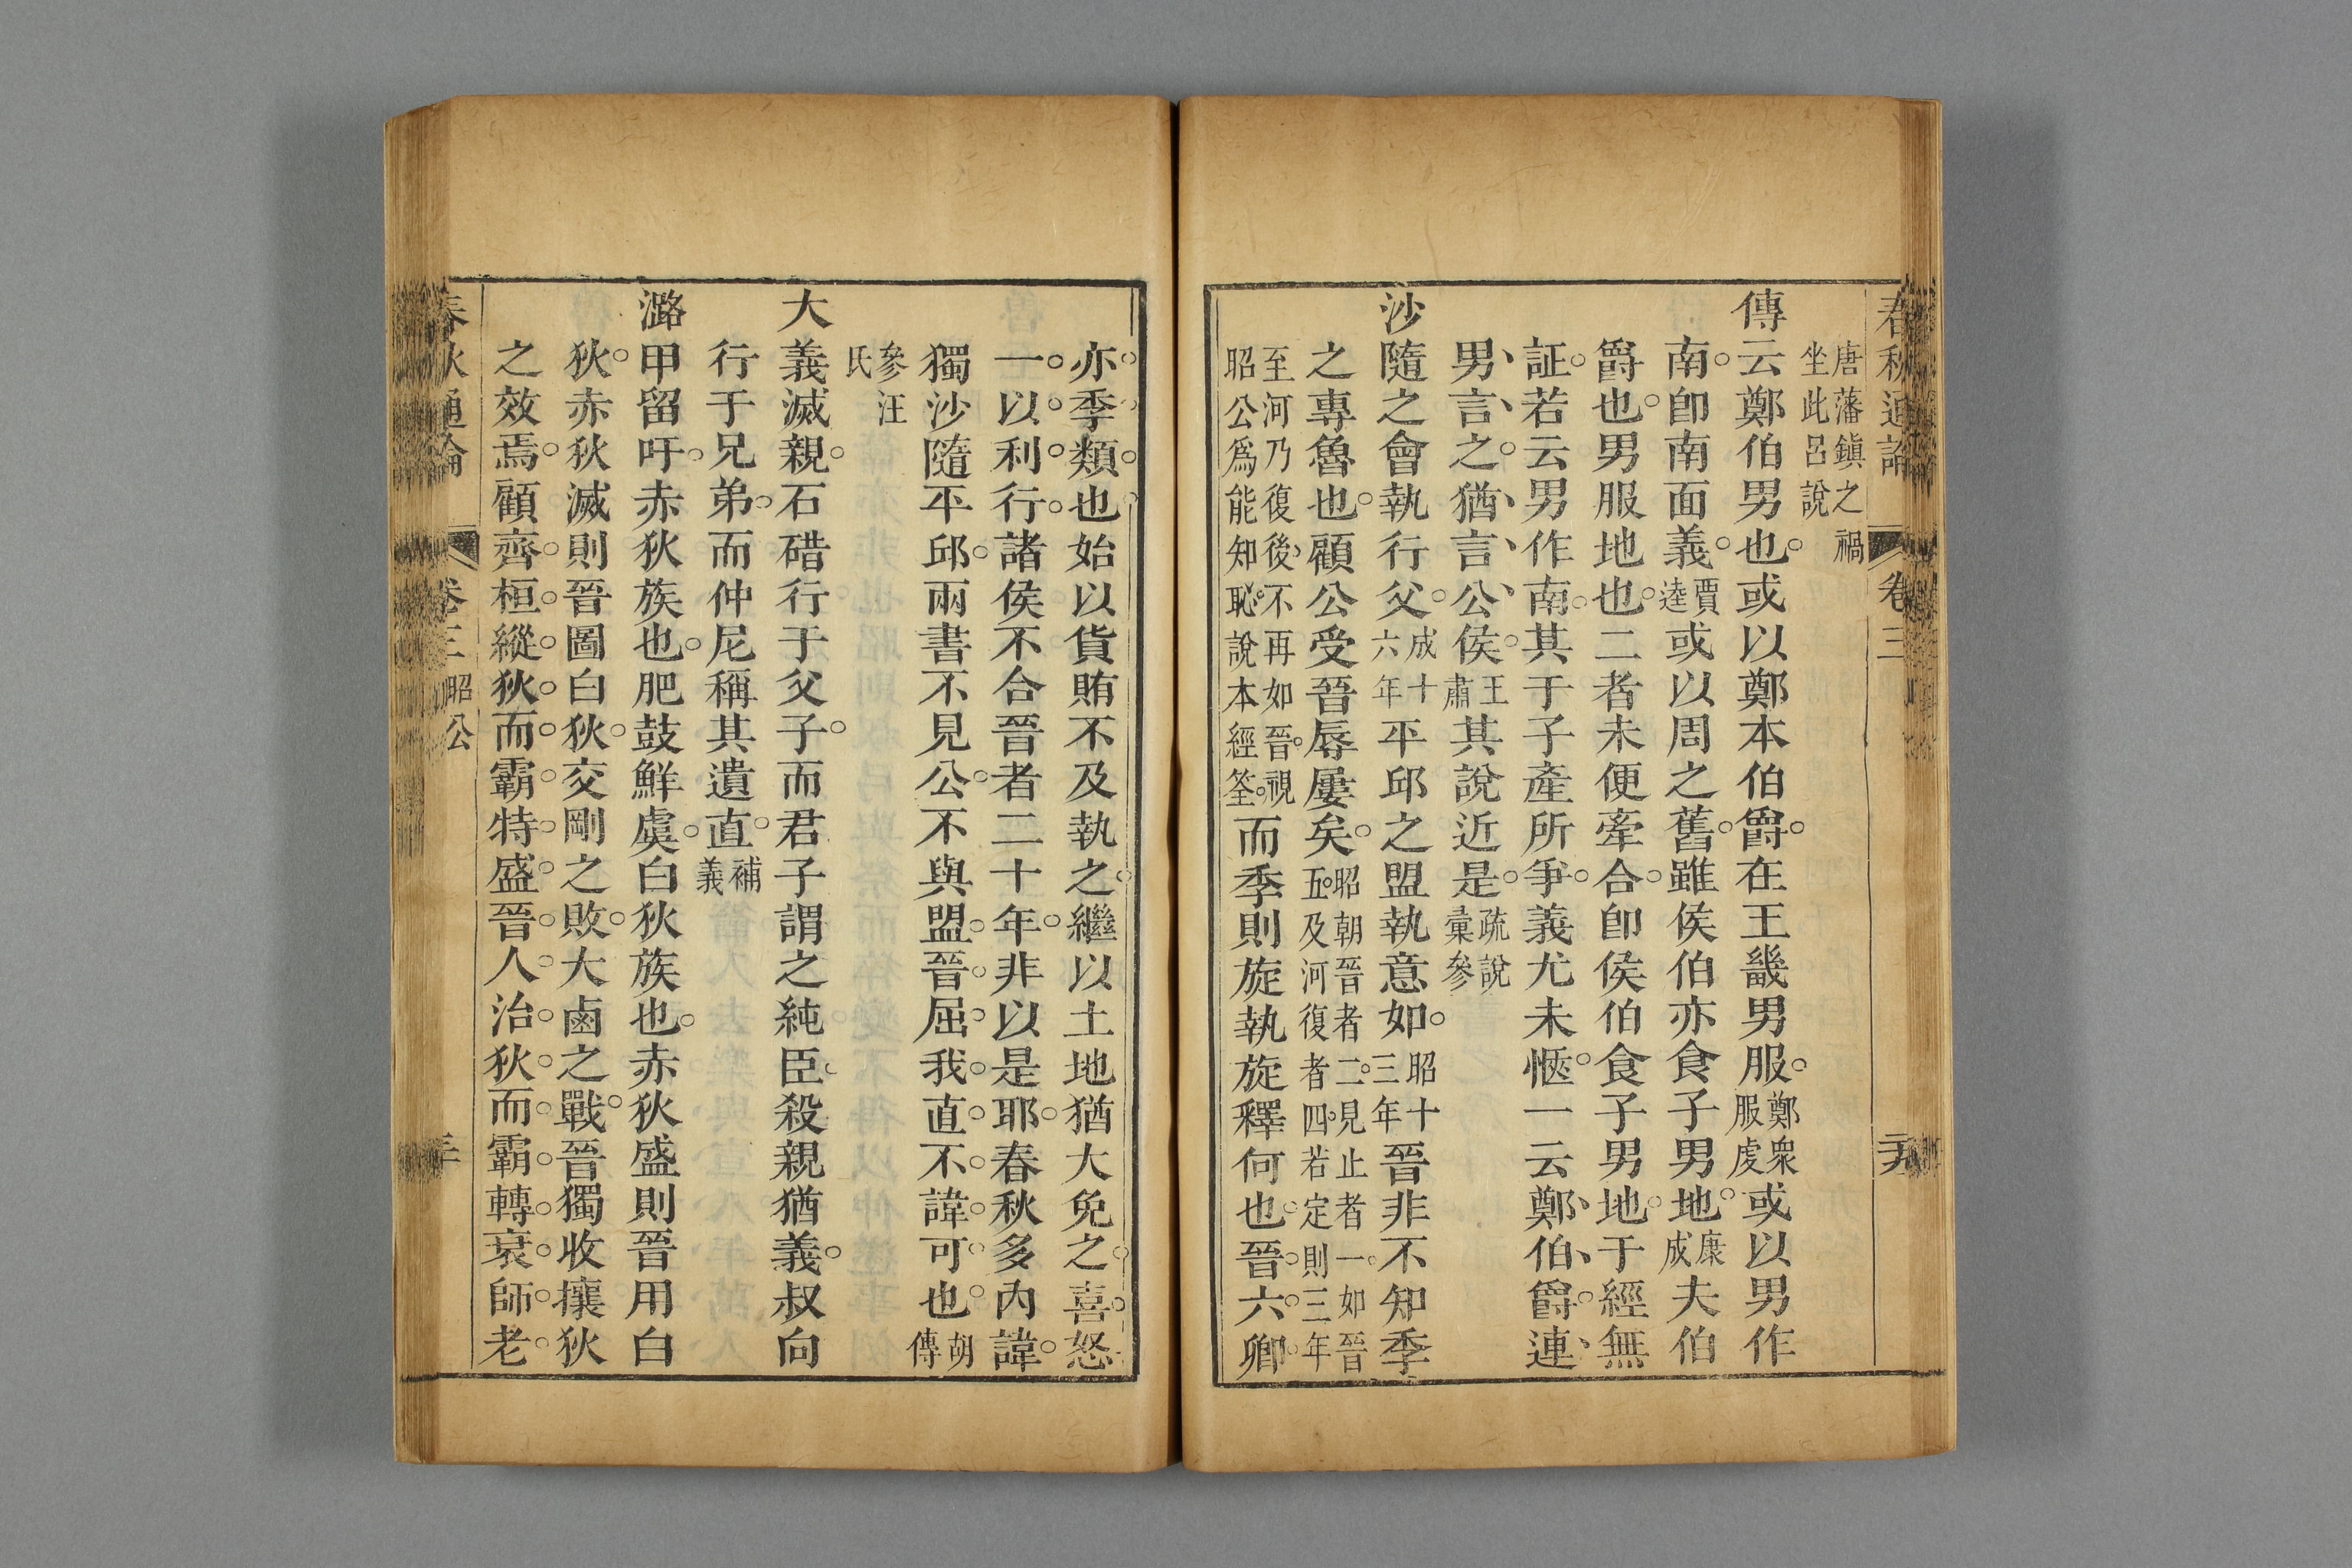 春秋通論 卷三 二十九
唐藩鎮之禍
坐此呂說
傳云鄭伯男也或以鄭本伯爵在王畿男服鄭衆服虔或以男作
南卽南面義賈逵或以周之舊雖侯伯亦食子男地康成夫伯
爵也男服地也二者未便牽合卽侯伯食子男地于經無
証若云男作南其于子產所爭義尤未愜一云鄭伯爵連
男言之猶言公侯王肅其說近是疏說彙參
沙隨之會執行父成十六年平邱之盟執意如昭十三年晉非不知季
之專魯也顧公受晉辱屢矣昭朝晉者二見止者一如晉五及河復者四若定則三年
至河乃復後不再如晉視昭公爲能知恥說本經筌而季則旋執旋釋何也晉六卿
亦季類也始以貨賄不及執之繼以土地猶大免之喜怒
一以利行諸侯不合晉者二十年非以是耶春秋多內諱
獨沙隨平邱兩書不見公不與盟晉屈我直不諱可也胡傳
參汪
氏
大義滅親石碏行于父子而君子謂之純臣殺親猶義叔向
行于兄弟而仲尼稱其遺直補義
潞甲留吁赤狄族也肥鼓鮮虞白狄族也赤狄盛則晉用白
狄赤狄滅則晉圖白狄交剛之敗大鹵之戰晉獨收攘狄
之效焉顧齊桓縱狄而霸特盛晉人治狄而霸轉衰師老
春秋通論 卷三 昭公 三十